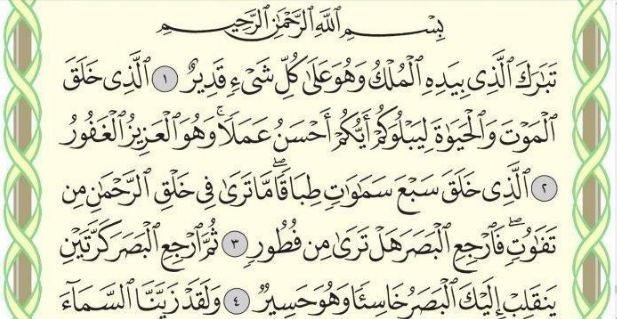 بِسْمِ اللَّهِ الرَّحْمَٰنِ الرَّحِيمِ
تَبَارَكَ الَّذِي بِيَدِهِ الْمُلْكُ وَهُوَ عَلَىٰ كُلِّ شَيْءٍ قَدِيرٌ ١ الَّذِي خَلَقَ
الْمَوْتَ وَالْحَيَوٰةَ لِيَبْلُوَكُمْ أَيُّكُمْ أَحْسَنُ عَمَلًا ۚ وَهُوَ الْعَزِيزُ الْغَفُورُ
٢ الَّذِي خَلَقَ سَبْعَ سَمَٰوَٰتٍ طِبَاقًا ۖ مَّا تَرَىٰ فِي خَلْقِ الرَّحْمَٰنِ مِن
تَفَٰوُتٍ ۖ فَارْجِعِ الْبَصَرَ هَلْ تَرَىٰ مِن فُطُورٍ ٣ ثُمَّ ارْجِعِ الْبَصَرَ كَرَّتَيْنِ
يَنقَلِبْ إِلَيْكَ الْبَصَرُ خَاسِئًا وَهُوَ حَسِيرٌ ٤ وَلَقَدْ زَيَّنَّا السَّمَاءَ